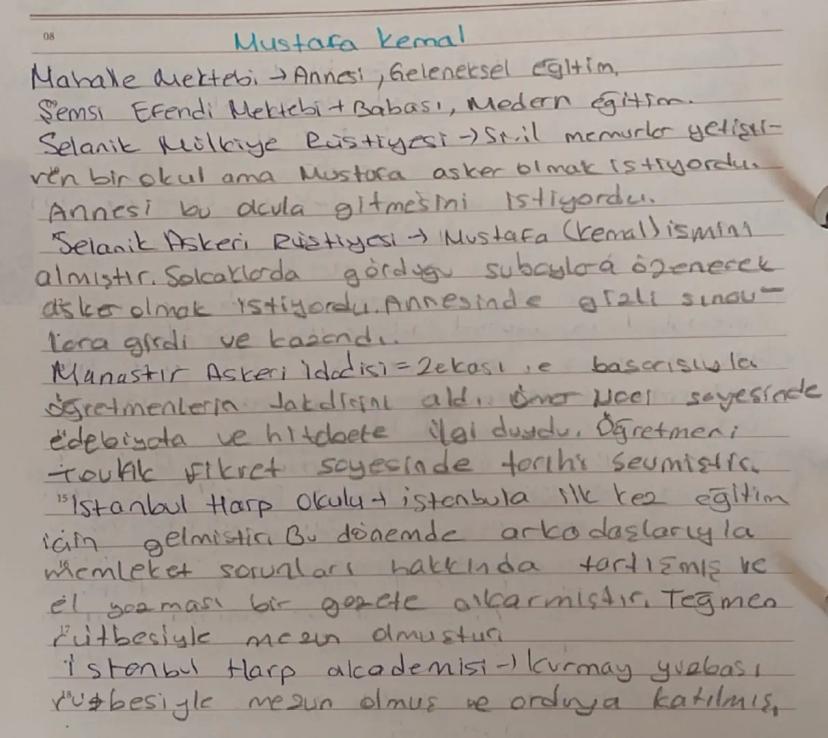 08
Mustafa Kemal
Mahalle Mektebi → Annesi, Geleneksel eğitim.
Şemsi Efendi Mektebi + Babası, Medern eğitim.
Selanik Mülkiye Rüştiyesi → Sivil memurlar yetişti-
ren bir okul ama Mustafa asker olmak istiyordu.
Annesi bu okula gitmesini istiyordu.
Selanik Askeri Rüştiyesi → Mustafa (Kemal) ismini
almıştır. Sokaklarda gördüğü subaylara özenerek
asker olmak istiyordu. Annesinde gizli sınav-
lara girdi ve kazandı.
Manastır Askeri İdadisi = Zekası ve basarisiyla
öğretmenlerin takdirini aldı. Ömer Naci sayesinde
edebiyata ve hitabete ilgi duydu. Öğretmeni
Tevfik Fikret sayesinde tarihi sevmistir.
15 İstanbul Harp Okulu → istanbula ilk kez eğitim
için gelmistir. Bu dönemde arkadaşlarıyla
memleket sorunları hakkında tartışmış ve
el yazması bir gazete çıkarmıstır. Teğmen
rütbesiyle mezun olmustur.
İstanbul Harp akademisi → kurmay yüzbası
rütbesiyle mezun olmuş ve orduya katılmış.